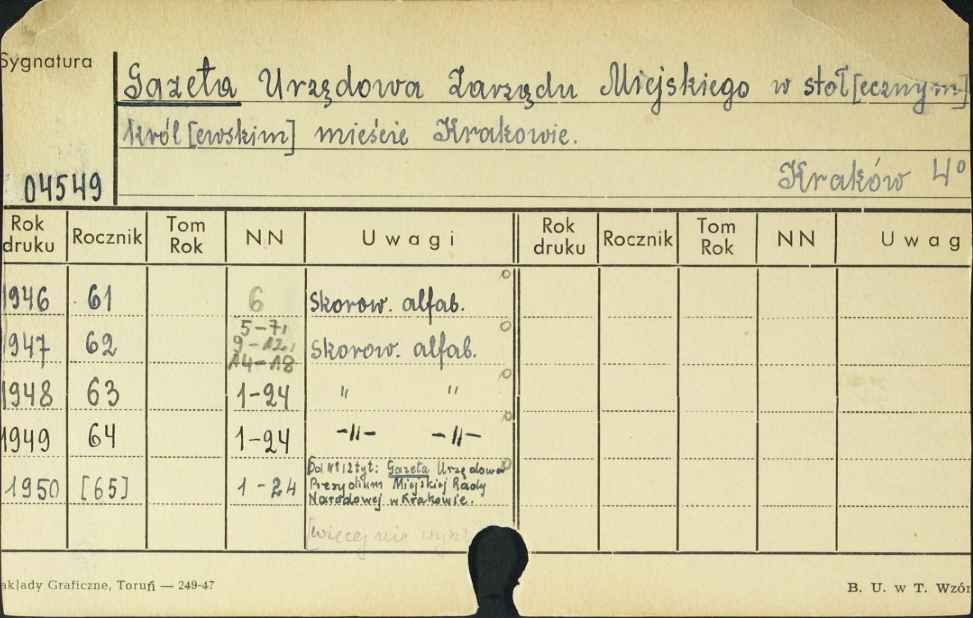 Sygnatura
Gazeta Urzędowa Zarządu Miejskiego w stoł[ecznym]
król[ewskim] mieście Krakowie.
04549
Kraków 4°
Rok druku Rocznik Tom Rok NN Uwagi Rok druku Rocznik Tom Rok NN Uwag
1946 61 6 Skorow. alfab.
1947 62 5-7, 9-12, 14-18 Skorow. alfab.
1948 63 1-24 " "
1949 64 1-24 -"- -"-
1950 [65] 1-24 Od Nr 12 tyt: Gazeta Urzędowa
Prezydium Miejskiej Rady
Narodowej w Krakowie.
[więcej nie
akłady Graficzne, Toruń — 249-47
B. U. w T. Wzór